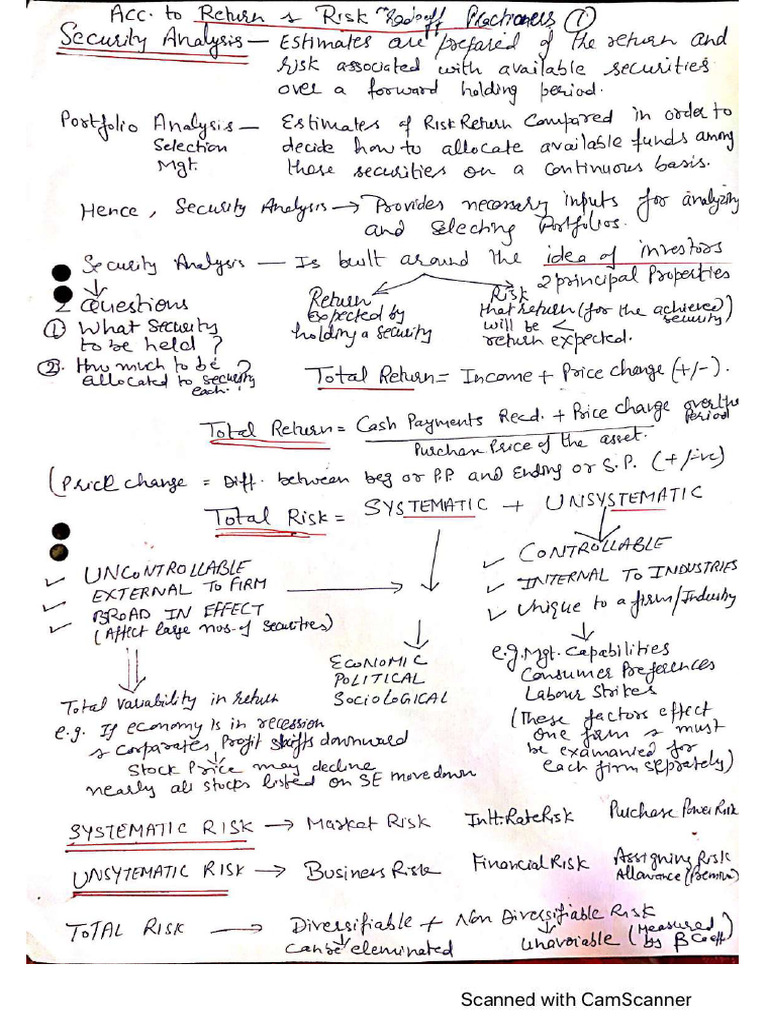 Acc. to Return & Risk "Tradeoff Practioners ①
Security Analysis – Estimates are prepared of the return and
risk associated with available securities
over a forward holding period.
Portfolio Analysis – Estimates of Risk Return Compared in order to
Selection decide how to allocate available funds among
Mgt. these securities on a continuous basis.
Hence, Security Analysis → Provides necessary inputs for analyzing
and selecting Portfolios.
Security Analysis – Is built around the idea of investors
2 principal Properties
2 Questions
① What Security
to be held?
②. How much to be
allocated to security
each.?
Return
expected by
holding a security
Risk
that return (for the achieved)
will be < security)
return expected.
Total Return = Income + Price change (+/-).
Total Return = Cash Payments Recd. + Price change over the
period
Purchase Price of the asset.
(Price change = Diff. between beg or P.P. and Ending or S.P. (+/-ve)
Total Risk = SYSTEMATIC + UNSYSTEMATIC
✓ UNCONTROLLABLE
✓ EXTERNAL TO FIRM →
✓ BROAD IN EFFECT
✓ (Affect large nos. of securities)
↓
ECONOMIC
POLITICAL
SOCIOLOGICAL
✓ CONTROLLABLE
✓ INTERNAL TO INDUSTRIES
✓ Unique to a firm/Industry
↓
e.g. Mgt. Capabilities
Consumer Preferences
Labour Strikes
(These factors effect
one firm & must
be examanied for
each firm seprately)
Total variability in return
e.g. If economy is in recession
& Corporates Profit shifts downward
Stock Price may decline
nearly all stocks listed on SE move down
SYSTEMATIC RISK → Market Risk Intt. Rate Risk Purchase Power Risk
UNSYTEMATIC RISK → Business Risk Financial Risk Assigning Risk
Allowance (Premium)
TOTAL RISK → Diversifiable + Non Diversifiable Risk
Can be eleminated Unavoiable (Measured
by β Coeff)
Scanned with CamScanner